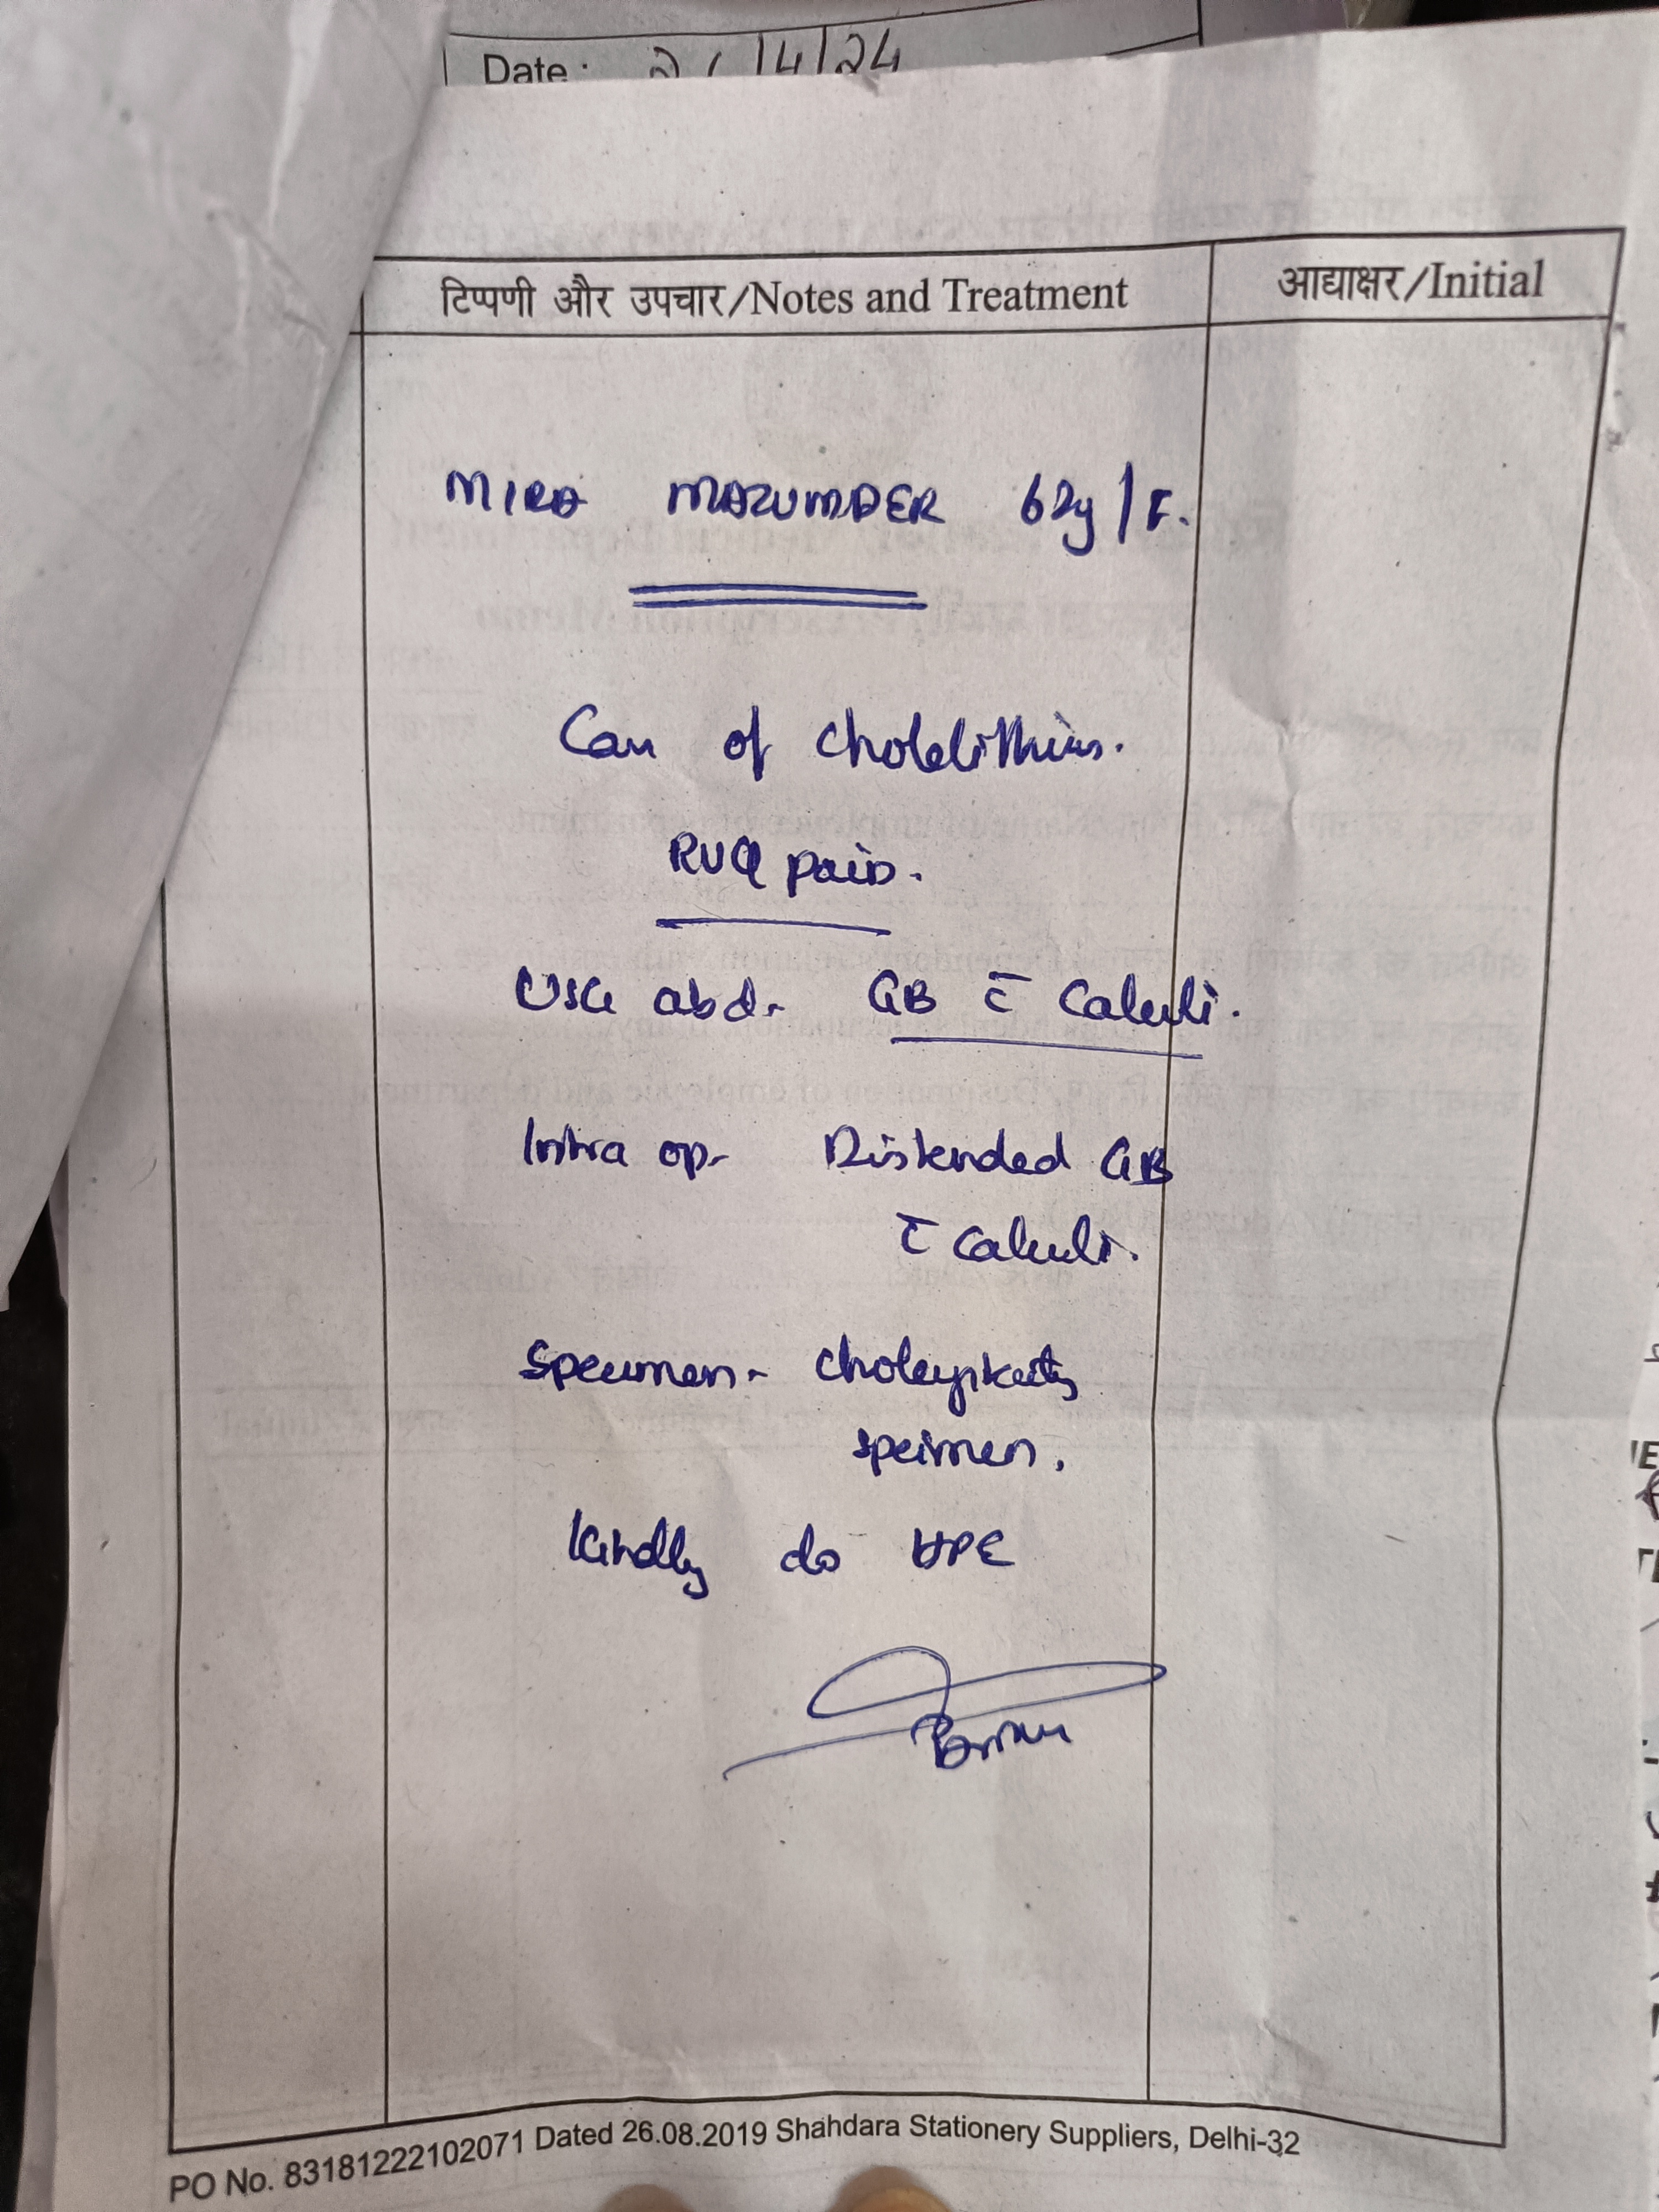 Date : 2 / 4/24
टिप्पणी और उपचार/Notes and Treatment
आद्याक्षर/Initial
MIRA MAZUMDER 62y/F.
Case of cholelithiasis.
RUQ pain.
USG abd- GB c̄ calculi.
Intra op- Distended GB
c̄ calculi.
Specimen- cholecystectomy
specimen.
Kindly do HPE
PO No. 83181222102071 Dated 26.08.2019 Shahdara Stationery Suppliers, Delhi-32